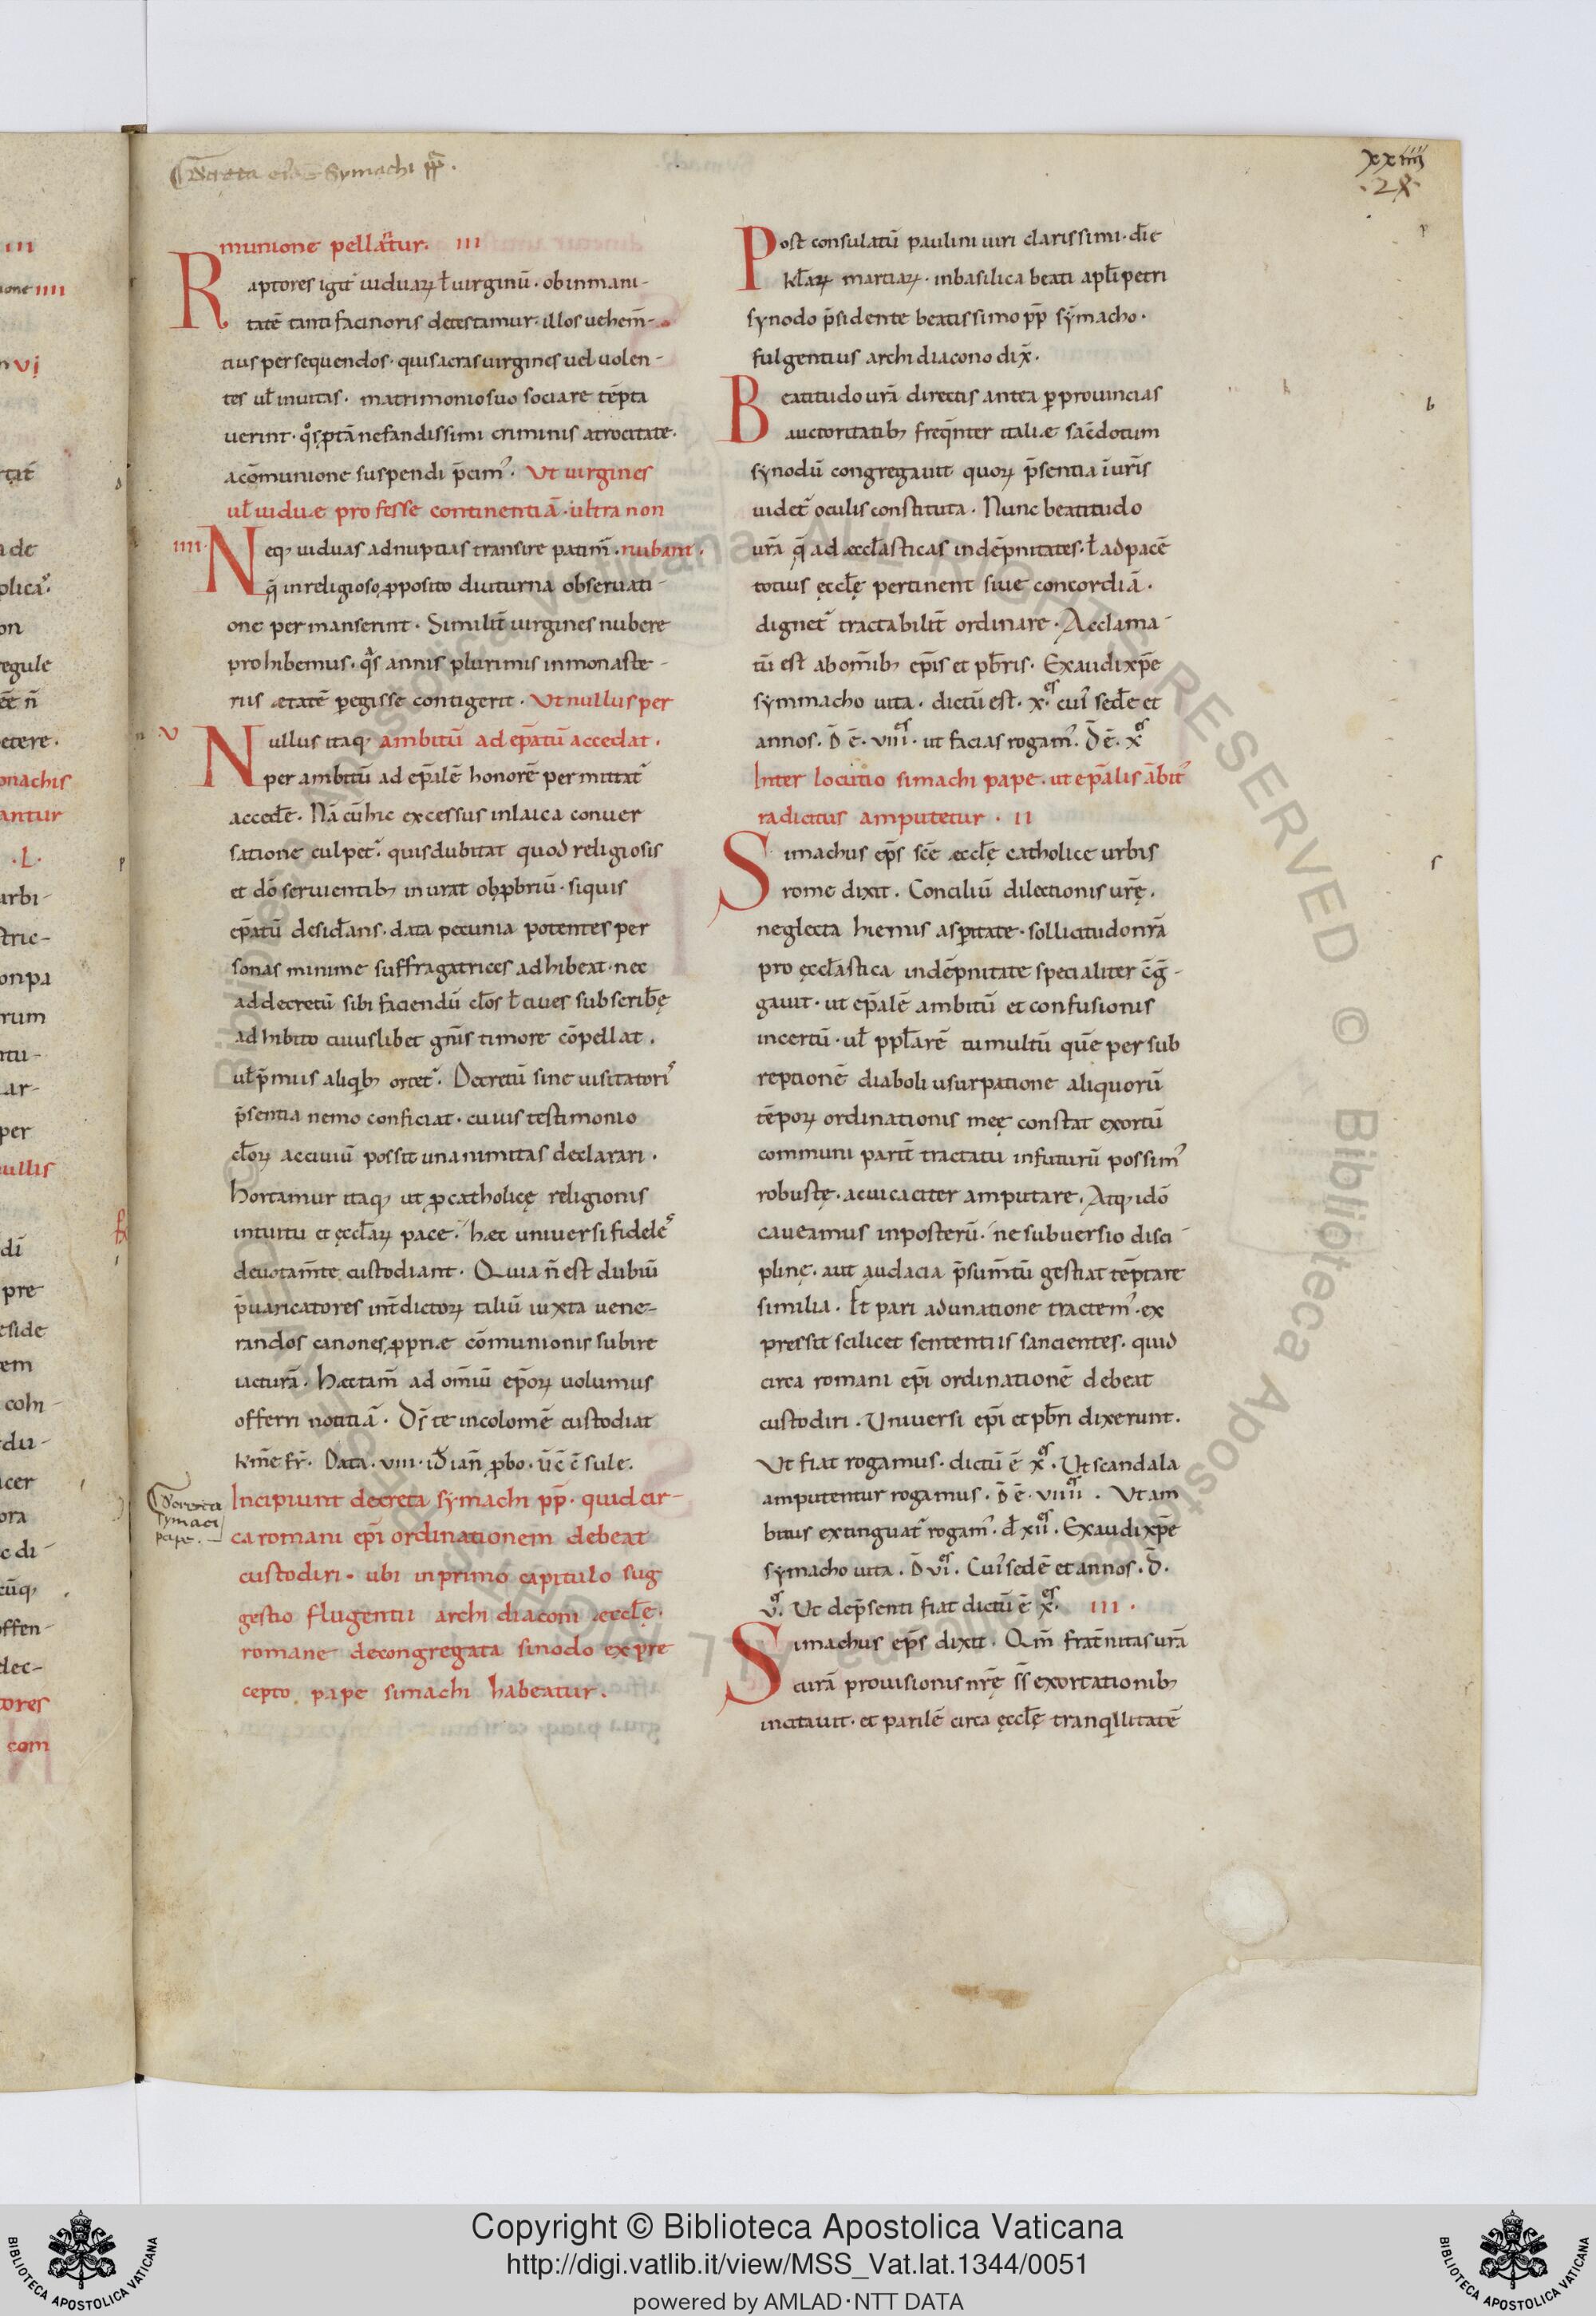 Decreta Symachi pp̄.
xxiiii
.28.
munione pellat̄ur. III
Raptores igit̄ uiduaꝝ ł uirginū. ob inmani-
tatē tanti facinoris detestamur. illos uehem̄-
tius persequendos. qui sacras uirgines uel uolen-
tes uł inuitas. matrimonio suo sociare tēpta
uerint. qͦs ꝓ tā nefandissimi criminis atrocitate.
a cōmunione suspendi p̄cimꝰ. Ut uirgines
uł uiduae professe continentiā. ultra non
IIII. Neqꝫ uiduas ad nuptias transire patim̄. nubant.
q̄ in religioso ꝓposito diuturna obseruati-
one permanserint. Similit̄ uirgines nubere
prohibemus. qͣs annis plurimis in monaste-
riis ætatē ꝑegisse contigerit. Ut nullus per
V Nullus itaqꝫ ambitū ad ep̄atū accedat.
per ambitū ad ep̄alē honorē permittat̄
accedē. Nā cū hic excessus in laica conuer
satione culpet̄. quis dubitat quod religiosis
et dō seruientibꝫ inurat obꝓbriū. siquis
ep̄atū desid̄ans. data pecunia potentes per
sonas minime suffragatrices adhibeat. nec
ad decretū sibi faciendū cłos ł ciues subscrib̄ę
adhibito cuiuslibet gn̄is timore cōpellat.
uł p̄miis aliqͥbꝫ ortet̄. Decretū sine uisitatorꝭ
p̄sentia nemo conficiat. cuius testimonio
cłoꝝ ac ciuiū possit unanimitas declarari.
Hortamur itaqꝫ ut ꝓ catholicę religionis
intuitu et ęccłaꝝ pace. hæc uniuersi fideleˢ
deuotam̄te custodiant. Quia n̄ est dubiū
p̄uaricatores int̄dictoꝝ taliū iuxta uene-
randos canones ꝓpriæ cōmunionis subire
iacturā. Hæc tam̄ ad om̄iū ep̄oꝝ uolumus
offerri notitiā. Ds̄ te incolomē custodiat
km̄e fr̄. Data. VIII. id̄ ian̄ ꝓbo. ūc̄ c̄sule.
Decreta
symaci
pape.
Incipiunt decreta symachi pp̄. quid cir-
ca romani ep̄i ordinationem debeat
custodiri. ubi in primo capitulo sug
gestio flugentii archidiaconi æccłę.
romane de congregata sinodo ex pre
cepto pape simachi habeatur.
Post consulatū paulini uiri clarissimi. diē
kłaꝝ martiaꝝ. in basilica beati apłi petri
synodo p̄sidente beatissimo pp̄ symacho.
fulgentius archidiacono dix̄.
Beatitudo ur̄a directis antea ꝑ prouincias
auctoritatibꝫ freqn̄ter italiæ sac̄dotum
synodū congregauit quoꝝ p̄sentia i ur̄is
uidet̄ oculis constituta. Nunc beatitudo
ur̄a q̄ ad æccłasticas indēpnitates. ł ad pacē
totius ęccłę pertinent siue concordiā.
dignet̄ tractabilit̄ ordinare. Acclama-
tū est ab om̄ibꝫ ep̄is et pb̄ris. Exaudi xp̄e
symmacho uita. dictū est. x.ᵉˢ cuiꝰ sedē et
annos. D̄ ē. VIIII.ᵉˢ ut facias rogamꝰ. D̄ ē. xᵉˢ
Inter locutio simachi pape. ut ep̄alis ābitꝰ
radicitus amputetur. II
Simachus ep̄s sc̄e æccłę catholice urbis
rome dixit. Conciliū dilectionis ur̄ę.
neglecta hiemis aspitate. sollicitudo nr̄a
pro ęccłastica indēpnitate specialiter c̄gͥ-
gauit. ut ep̄alē ambitū et confusionis
incertū. uł ppłarē tumultū quē per sub
reptionē diaboli usurpatione aliquorū
tēpoꝝ ordinationis meę constat exortū
communi parit̄ tractatu in futurū possimꝰ
robustę. ac uicaciter amputare. Atqꝫ idō
caueamus in posterū. ne subuersio disci-
plinę. aut audacia p̄sumtū gestiat tēptare
similia. Et pari adunatione tractemꝰ. ex
pressit scilicet sententiis sancientes. quid
circa romani ep̄i ordinationē debeat
custodiri. Uniuersi ep̄i et pb̄ri dixerunt.
Ut fiat rogamus. dictū ē xᵉˢ. Ut scandala
amputentur rogamus. D̄ ē. VIIIIᵉˢ. Ut am
bitus extinguat̄ rogamꝰ. d̄ xiiᵉˢ. Exaudi xp̄e
symacho uita. D̄ VIᵉˢ. Cuiꝰ sedē et annos. D̄.
Vᵉˢ. Ut dep̄senti fiat dictū ē xᵉˢ. III.
Simachus ep̄s dixit. Qm̄ frat̄nitas ur̄a
curā prouisionis nr̄ę ss̄ exortationibꝫ
incitauit. et parilē circa ęccłę tranqͥllitatē
Copyright © Biblioteca Apostolica Vaticana
http://digi.vatlib.it/view/MSS_Vat.lat.1344/0051
powered by AMLAD·NTT DATA